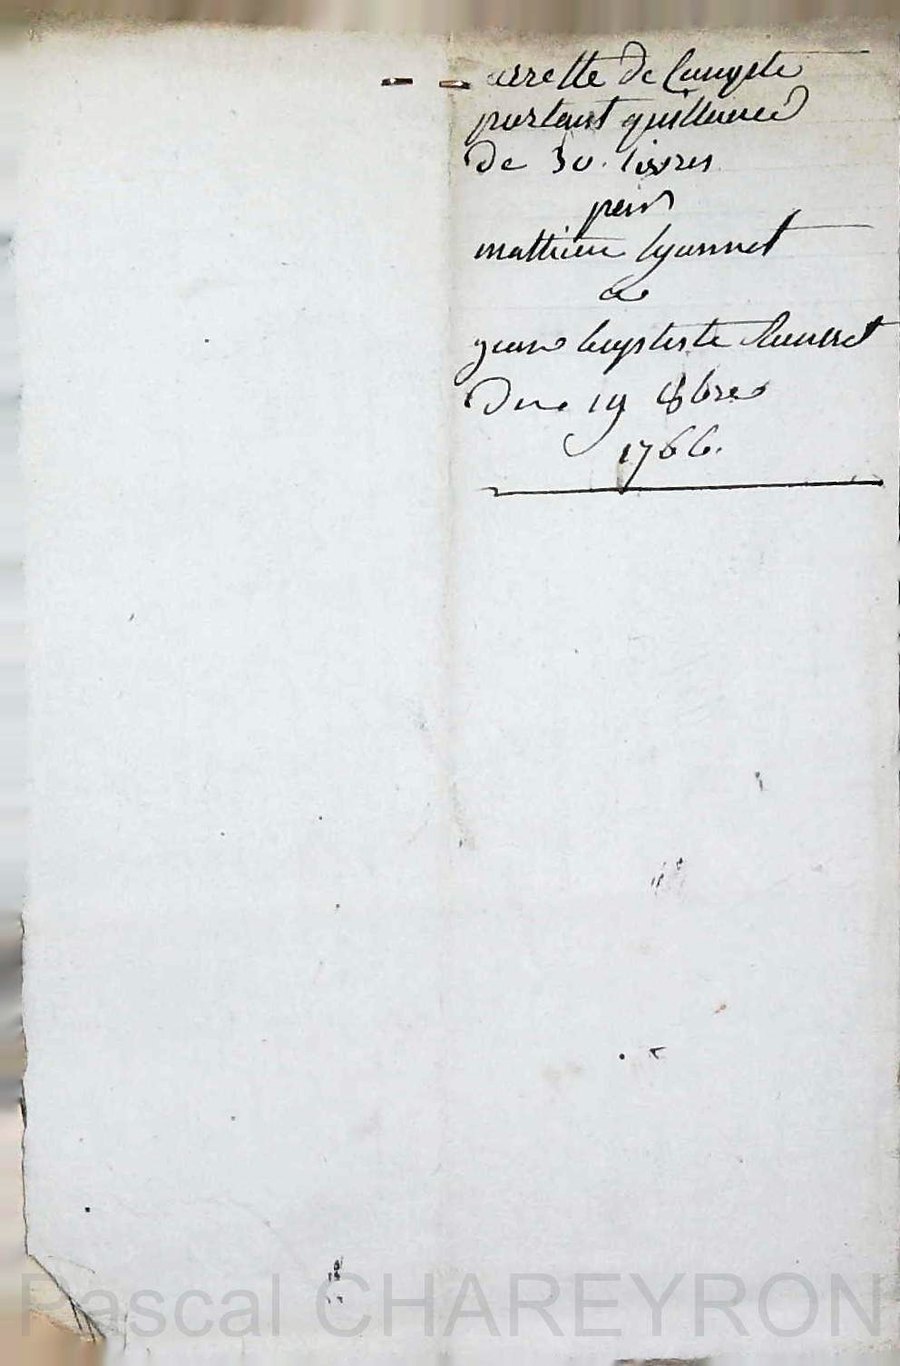 arrette de Compte
portant quittance
de 30. livres
pour
mathieu lyonnet
a
jean baptiste
du 19 8bre
1766.
Pascal CHAREYRON